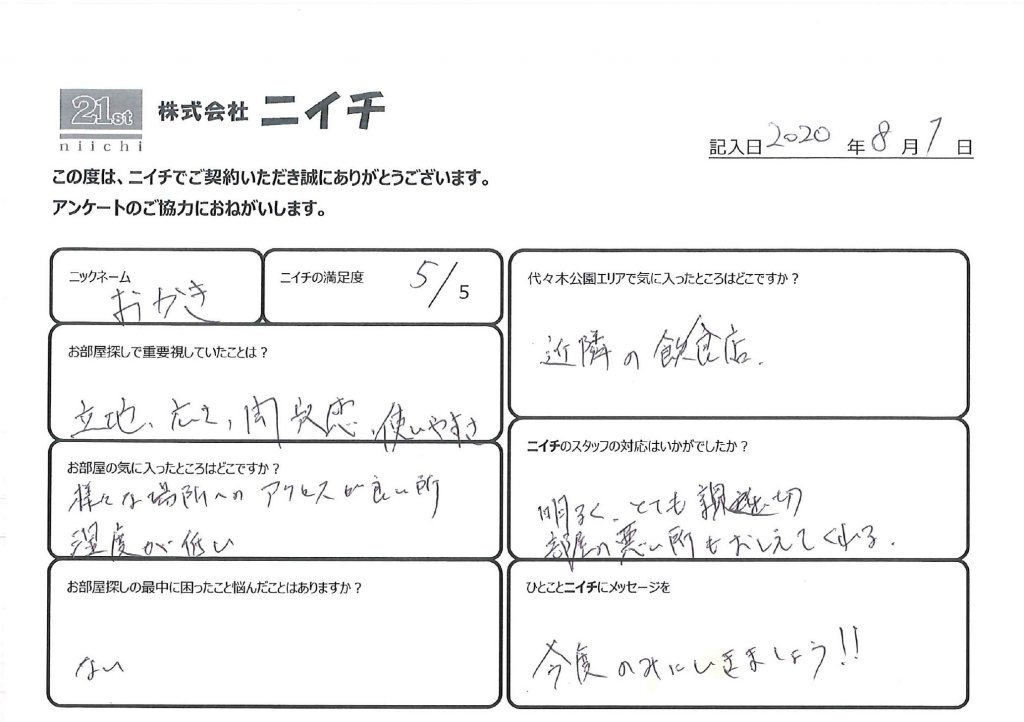 21st
niichi
株式会社 ニイチ
記入日 2020 年 8 月 7 日
この度は、ニイチでご契約いただき誠にありがとうございます。
アンケートのご協力におねがいします。
ニックネーム
おかき
ニイチの満足度
5/5
お部屋探しで重要視していたことは？
立地、広さ、開放感、使いやすさ
お部屋の気に入ったところはどこですか？
様々な場所へのアクセスが良い所
湿度が低い
お部屋探しの最中に困ったこと悩んだことはありますか？
ない
代々木公園エリアで気に入ったところはどこですか？
近隣の飲食店.
ニイチのスタッフの対応はいかがでしたか？
明るく、とても親切
部屋の悪い所もおしえてくれる.
ひとことニイチにメッセージを
今度のみにいきましょう!!